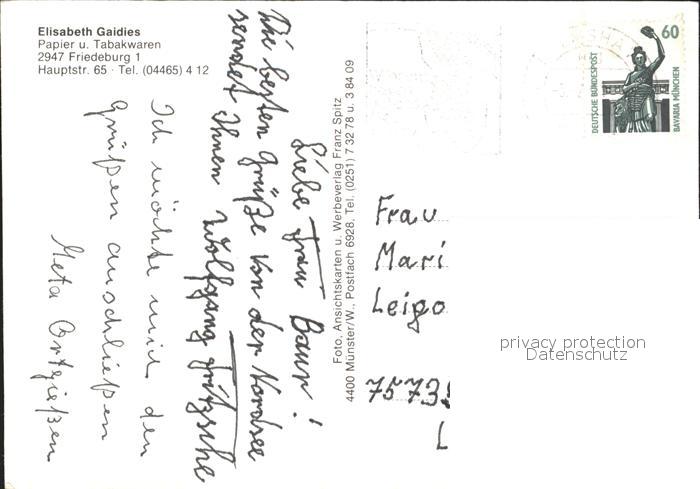 Elisabeth Gaidies
Papier u. Tabakwaren
2947 Friedeburg 1
Hauptstr. 65 · Tel. (04465) 4 12
Liebe Frau Baur!
Die besten Grüße von der Nordsee
sendet Ihnen Wolfgang Fritzsche
Ich möchte mich den
Grüßen anschließen
Meta Ortgießen
Foto, Ansichtskarten u. Werbeverlag Franz Spitz
4400 Münster/W., Postfach 6928, Tel. (0251) 7 32 78 u. 3 84 09
60
DEUTSCHE BUNDESPOST
BAVARIA MÜNCHEN
Frau
Mari
Leipo
7573
L
privacy protection
Datenschutz